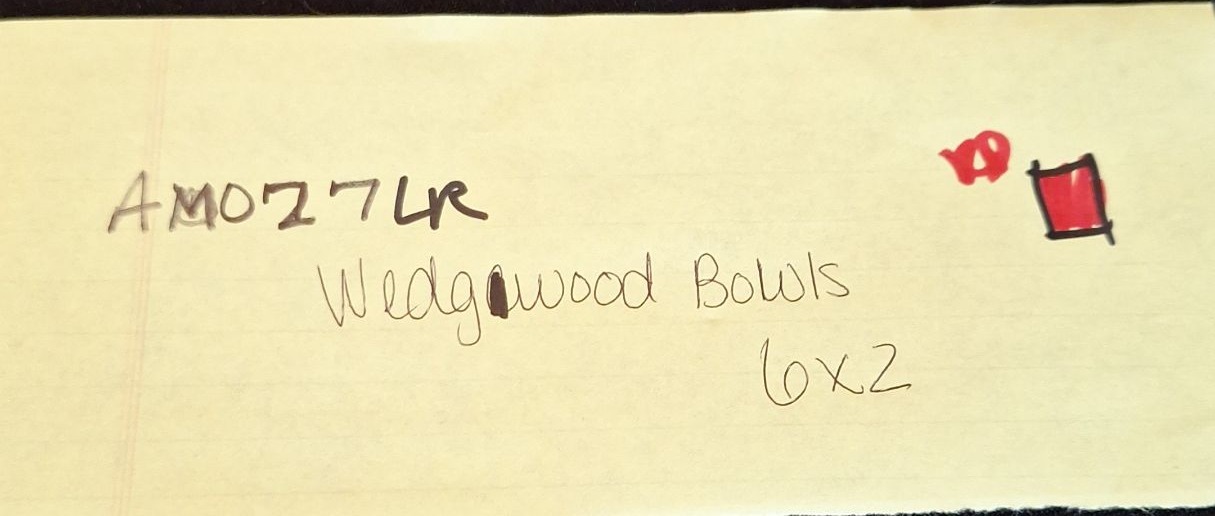 AM077LR
Wedgwood Bowls
6x2